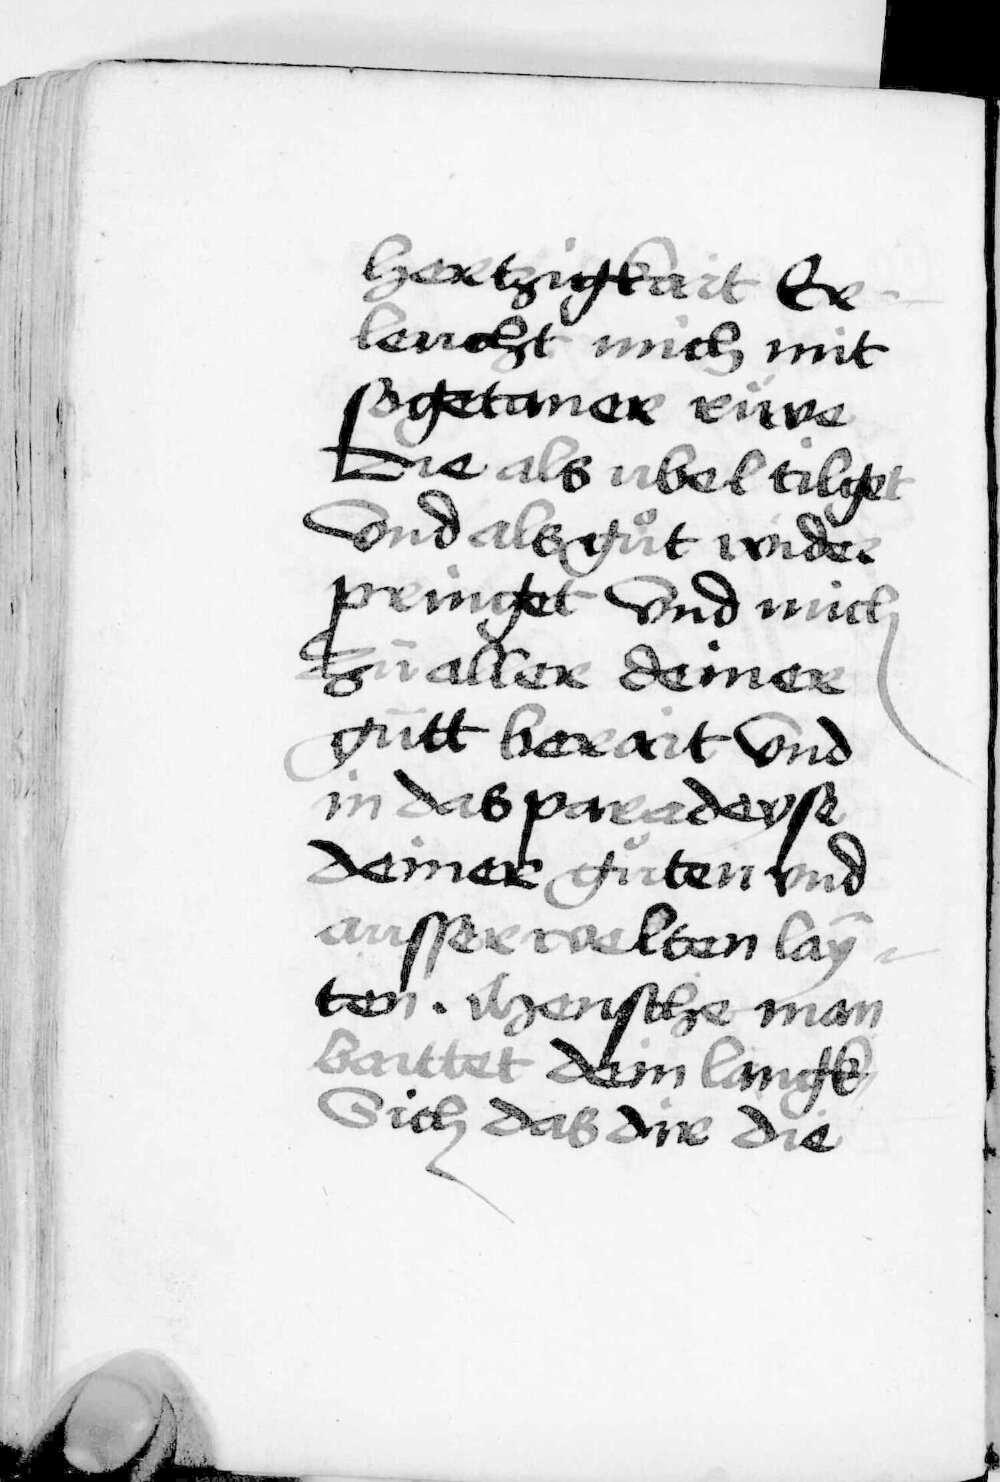 hertzigkait Er-
leucht mich mit
sogetaner rüwe
Die als ubel tilget
vnd als gůt wider
pringet vnd mich
zü aller deiner
gütt berait vnd
in das paradeyse
deiner gůten vnd
ausserwelten laÿ-
ten. Mensche man
baittet dein langk
Sich das dir die